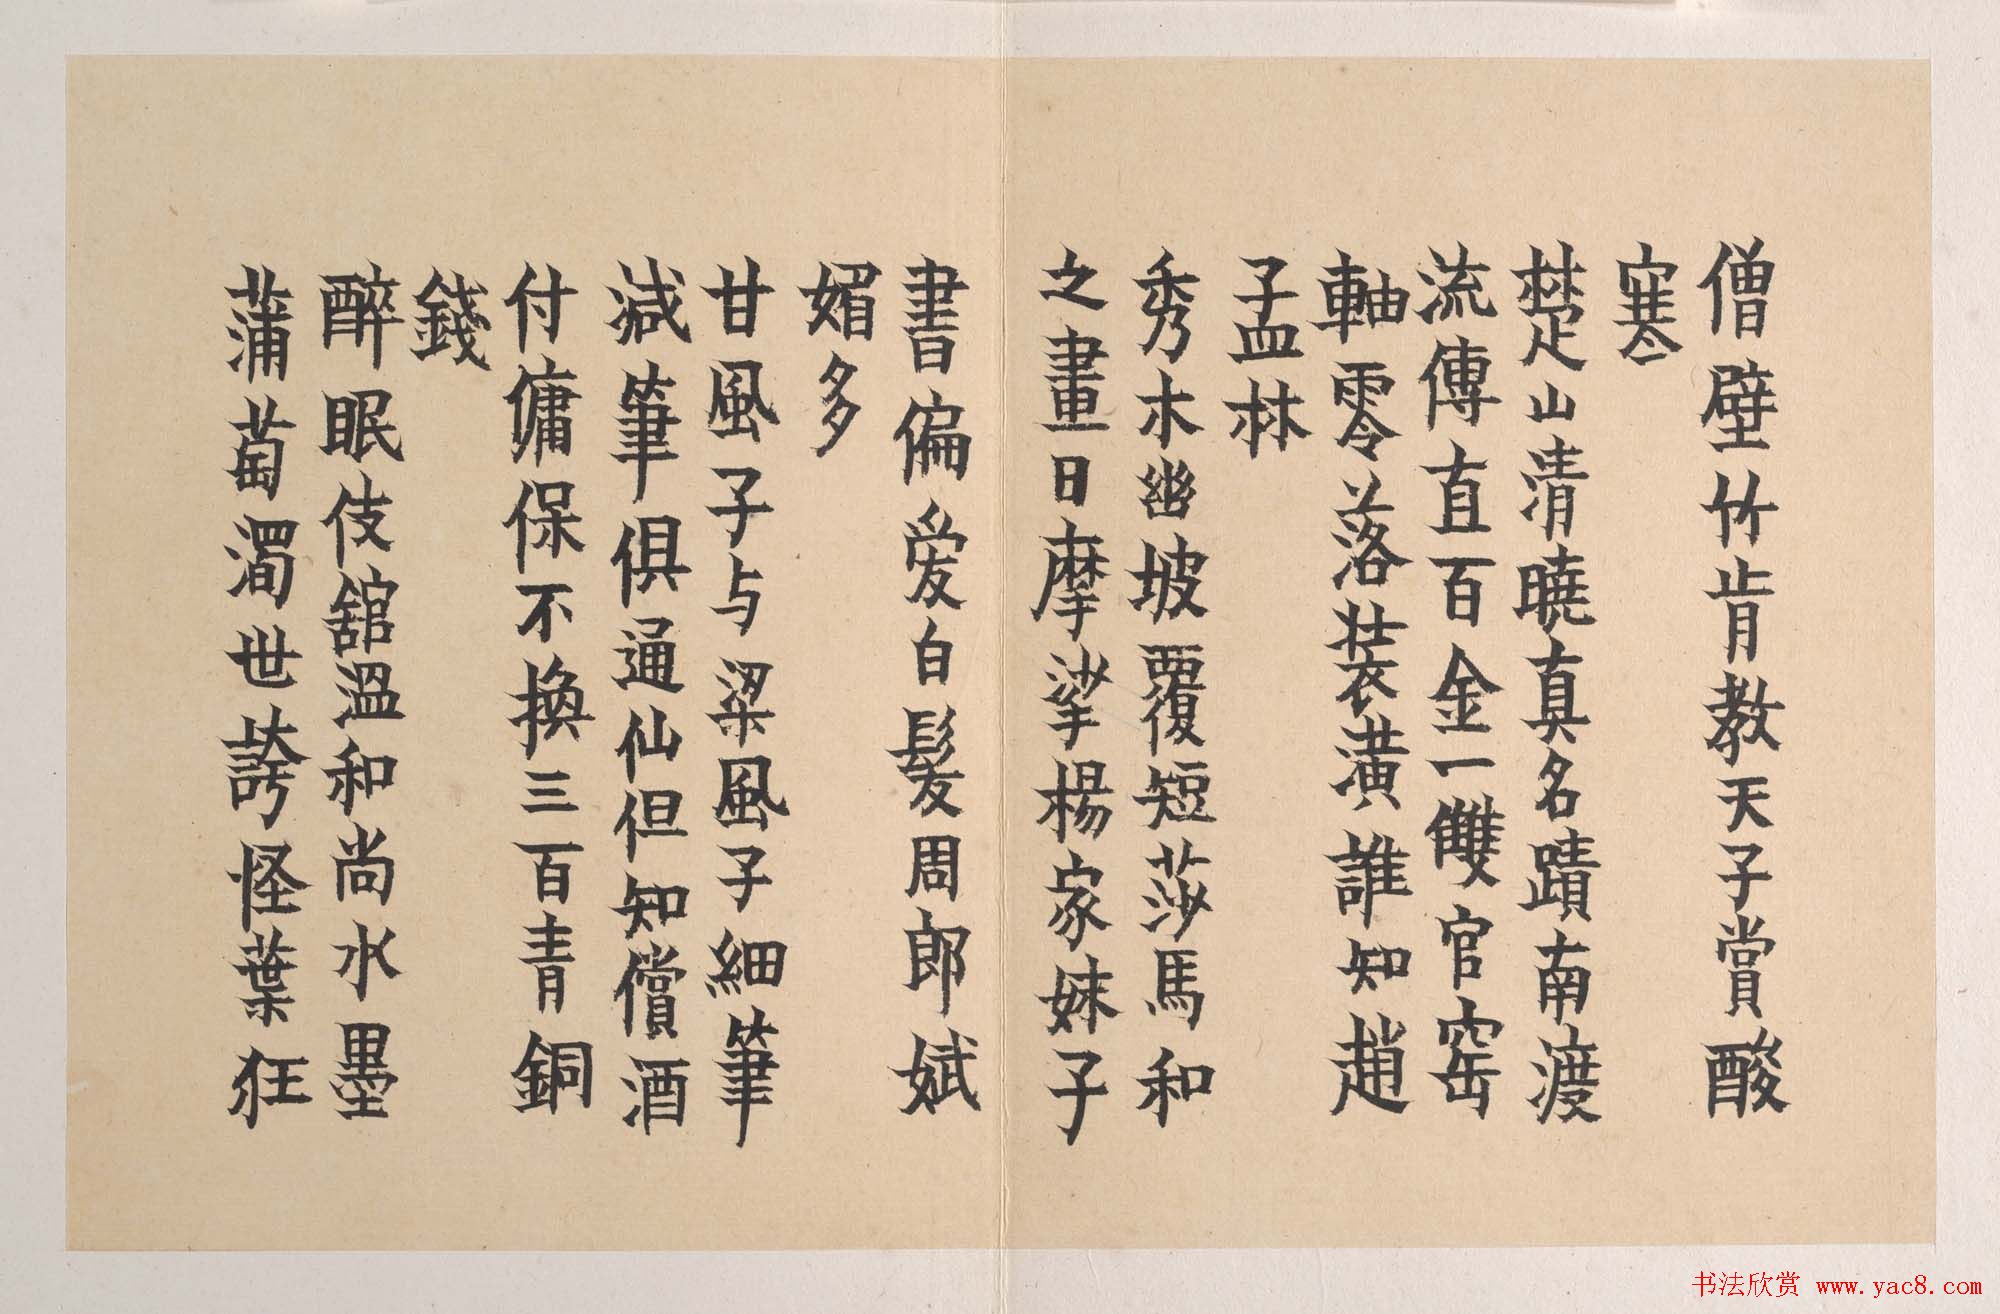 僧壁竹肯教天子賞酸
寒
楚山清曉真名蹟南渡
流傳直百金一雙官窑
軸零落装潢誰知趙
子孟林
秀木幽坡覆短莎馬和
之畫日摩挲楊家妹子
書偏爱白髮周郎娬
媚多
甘風子与梁風子細筆
减筆俱通仙但知償酒
付傭保不換三百青銅
錢
醉眠伎舘溫和尚水墨
蒲萄濁世誇怪葉狂
书法欣赏 www.yac8.com